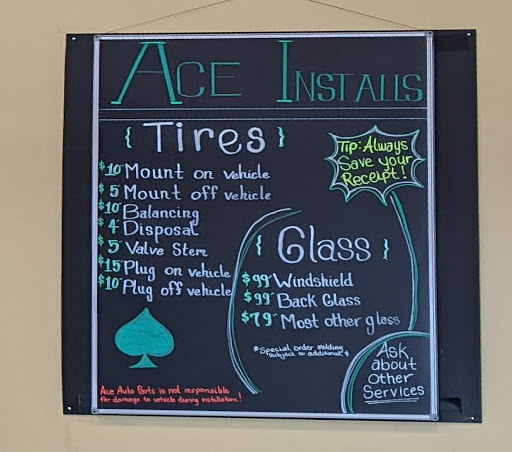 ACE INSTALLS
{ Tires }
$10 Mount on vehicle
$5 Mount off vehicle
$10 Balancing
$4 Disposal
$5 Valve Stem
$15 Plug on vehicle
$10 Plug off vehicle
Tip: Always
Save your
Receipt!
{ Glass }
$99 Windshield
$99 Back Glass
$79 Most other glass
*Special order molding
subject to additional $
Ask
about
other
Services
Ace Auto Parts is not responsible
for damage to vehicle during installation!